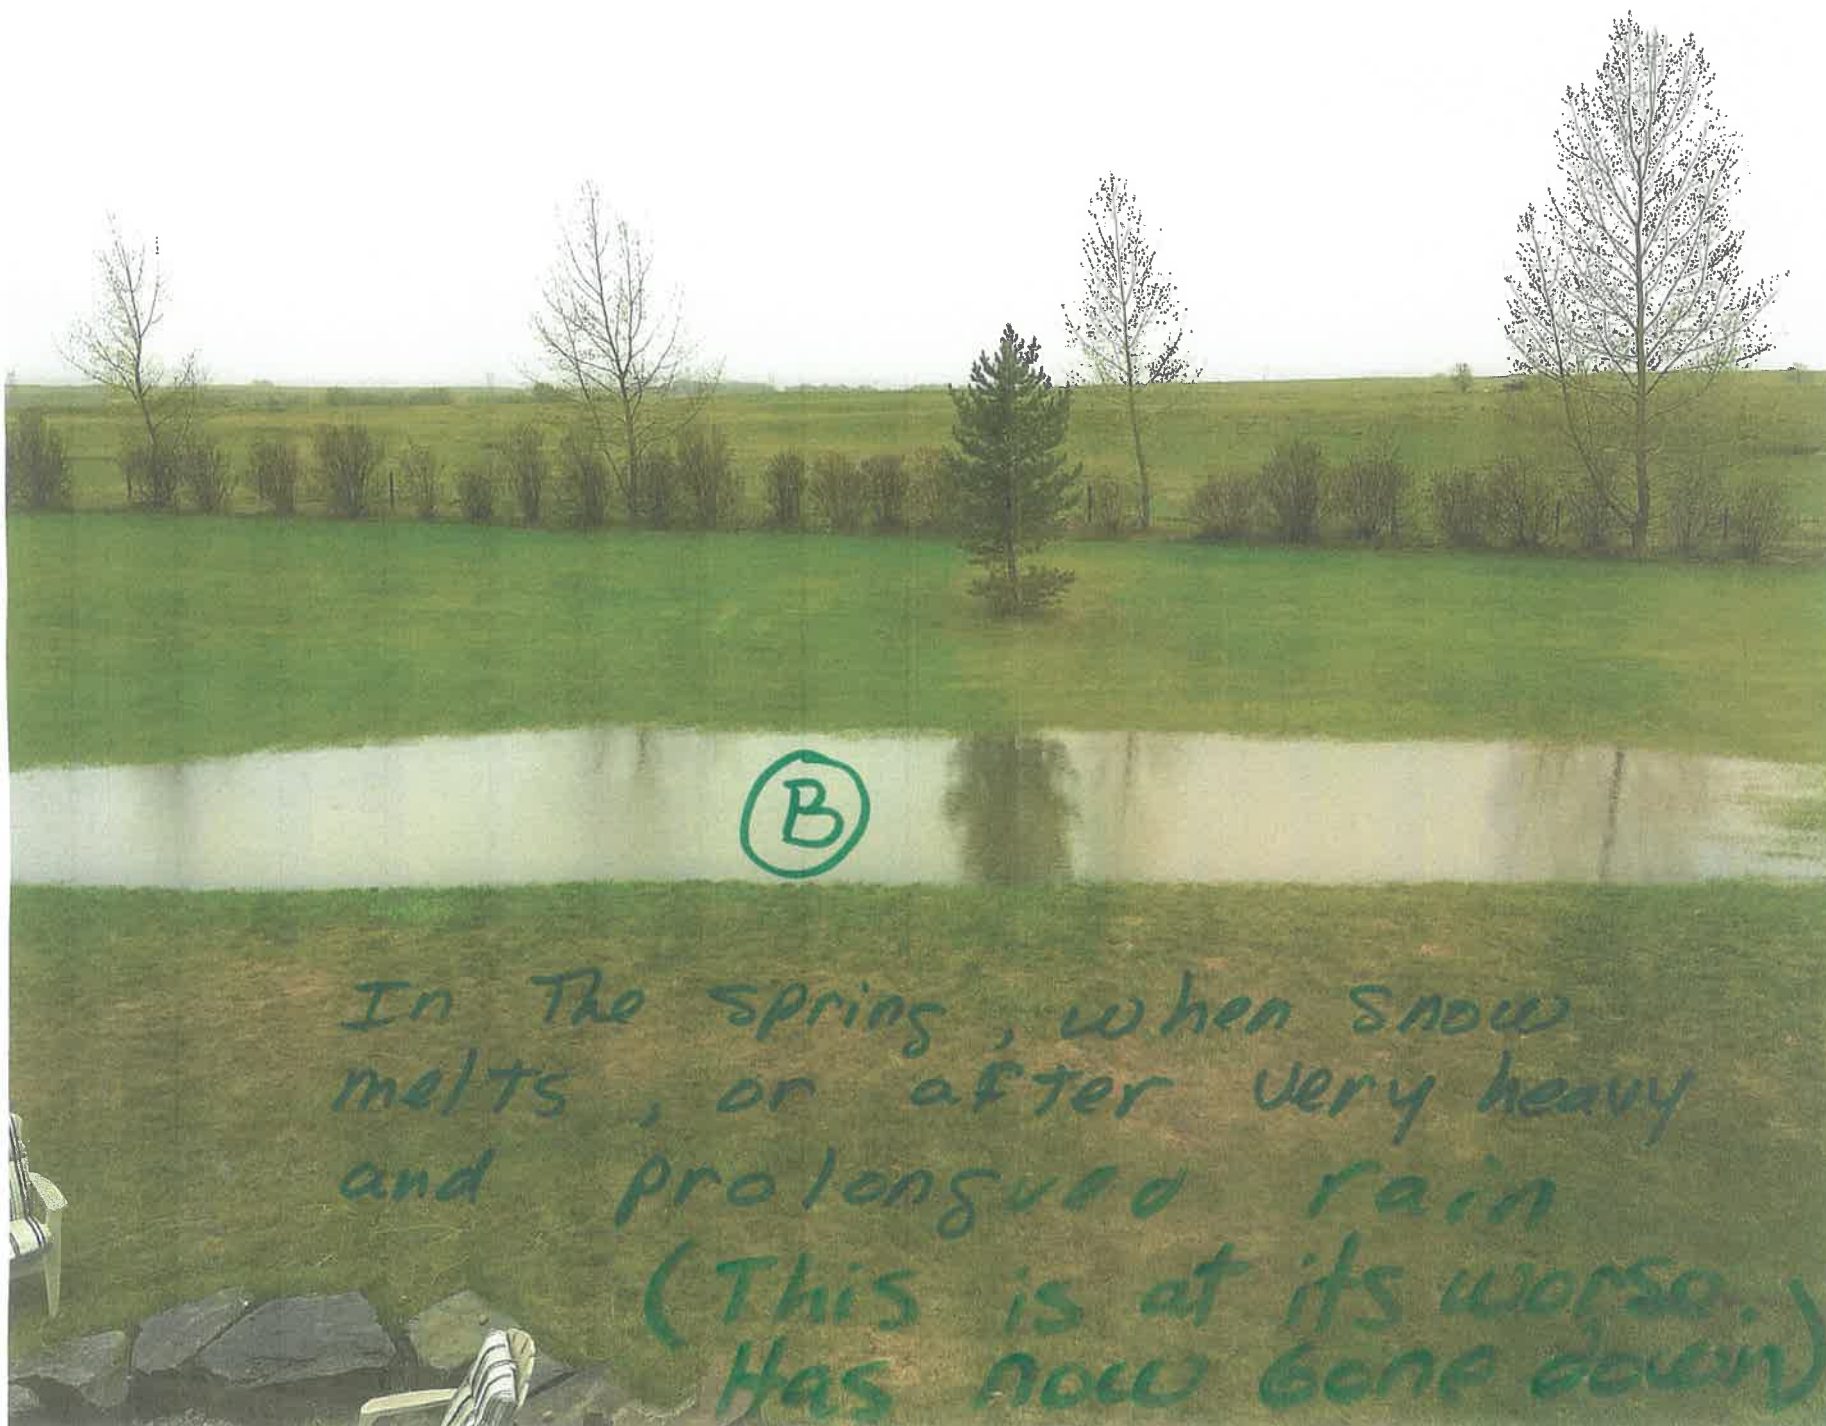 B
In The spring, when snow
melts, or after very heavy
and prolongued rain
(This is at its worse.
Has now Gone down)